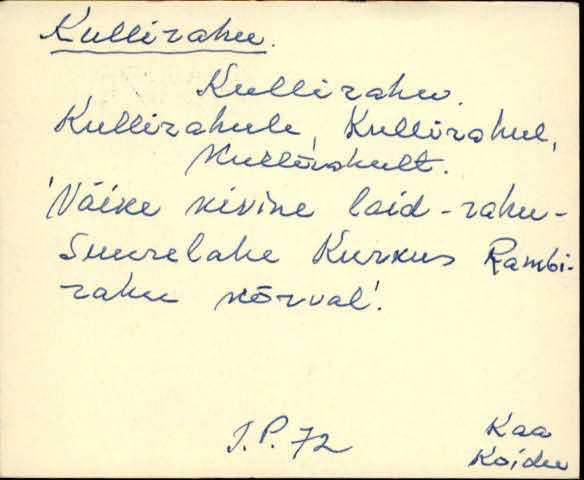 Kullirahu.
Kullirahu.
Kullirahule, Kullirahul,
Kullirahult.
'Väike kivine laid-rahu-
Suurelahe Kurkus Rambi-
rahu kõrval'.
J.P. 72
Kaa
Koidu